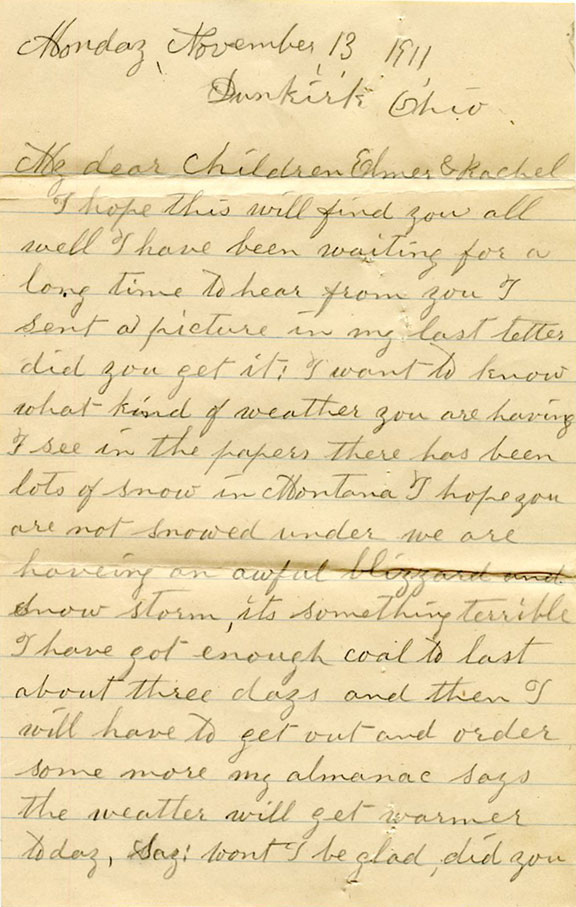 Monday, November, 13 1911
Dunkirk Ohio.
My dear Children Elmer & Rachel
I hope this will find you all
well I have been waiting for a
long time to hear from you I
sent a picture in my last letter
did you get it: I want to know
what kind of weather you are having
I see in the papers there has been
lots of snow in Montana I hope you
are not snowed under we are
haveing an awful blizzard and
snow storm, its something terrible
I have got enough coal to last
about three days and then I
will have to get out and order
some more my almanac says
the weatter will get warmer
today, Say: wont I be glad, did you